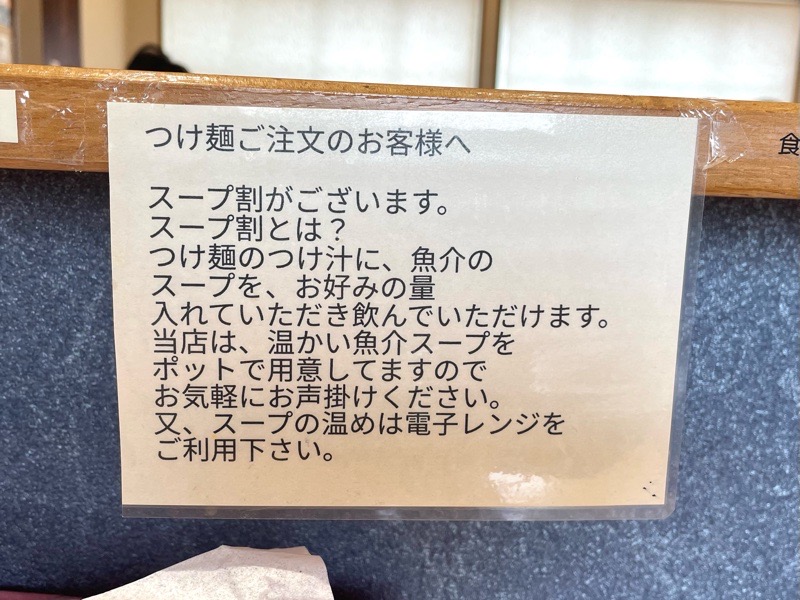 つけ麺ご注文のお客様へ
スープ割がございます。
スープ割とは？
つけ麺のつけ汁に、魚介の
スープを、お好みの量
入れていただき飲んでいただけます。
当店は、温かい魚介スープを
ポットで用意してますので
お気軽にお声掛けください。
又、スープの温めは電子レンジを
ご利用下さい。
食